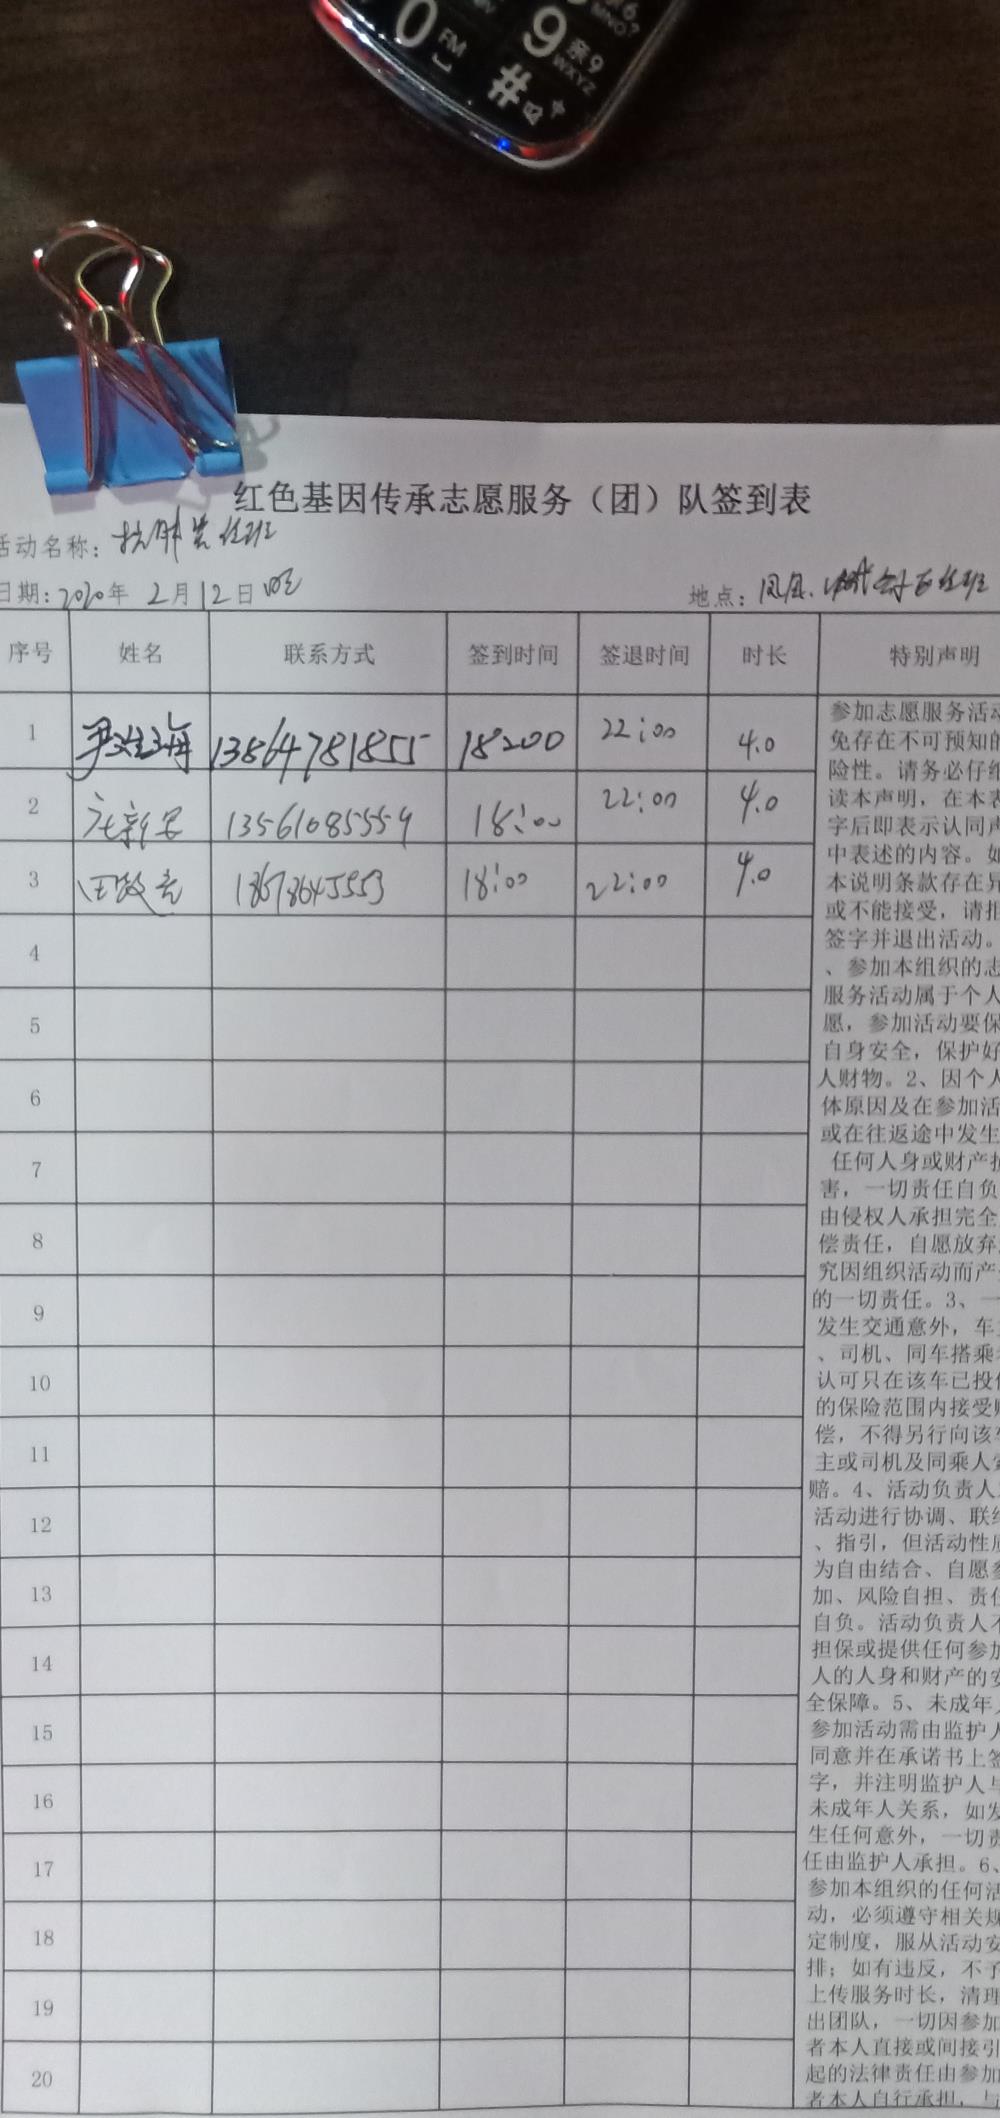 0
FM
9
WXYZ
MNO
#
红色基因传承志愿服务（团）队签到表
活动名称：
日期：2020年 2月12日
地点：
序号 姓名 联系方式 签到时间 签退时间 时长 特别声明
1 13864781855 18:00 22:00 4.0
2 13561085559 18:00 22:00 4.0
3 18678645553 18:00 22:00 4.0
4
5
6
7
8
9
10
11
12
13
14
15
16
17
18
19
20
参加志愿服务活动
免存在不可预知的
险性。请务必仔细
读本声明，在本表
字后即表示认同声
中表述的内容。如
本说明条款存在异
或不能接受，请拒
签字并退出活动。
、参加本组织的志
服务活动属于个人
愿，参加活动要保
自身安全，保护好
人财物。2、因个人
体原因及在参加活
或在往返途中发生
任何人身或财产损
害，一切责任自负
由侵权人承担完全
偿责任，自愿放弃
究因组织活动而产
的一切责任。3、一
发生交通意外，车
、司机、同车搭乘
认可只在该车已投
的保险范围内接受
偿，不得另行向该车
主或司机及同乘人索
赔。4、活动负责人
活动进行协调、联络
、指引，但活动性质
为自由结合、自愿参
加、风险自担、责任
自负。活动负责人不
担保或提供任何参加
人的人身和财产的安
全保障。5、未成年人
参加活动需由监护人
同意并在承诺书上签
字，并注明监护人与
未成年人关系，如发
生任何意外，一切责
任由监护人承担。6、
参加本组织的任何活
动，必须遵守相关规
定制度，服从活动安
排；如有违反，不予
上传服务时长，清理
出团队，一切因参加
者本人直接或间接引
起的法律责任由参加
者本人自行承担，与